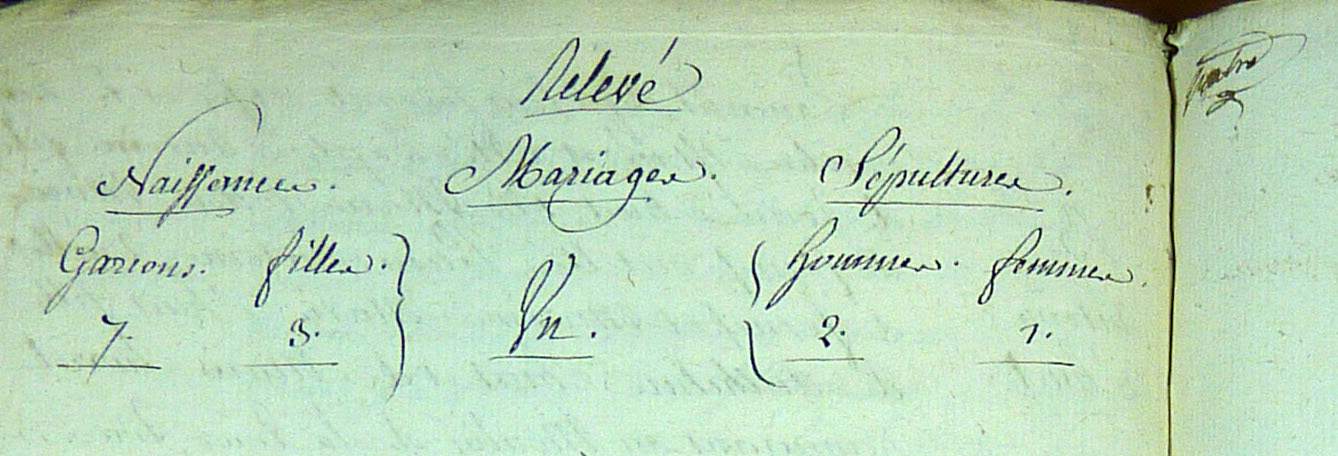 Relevé
Naissances. Mariages. Sépultures.
Garçons. filles. hommes. femmes.
7. 3. Un. 2. 1.